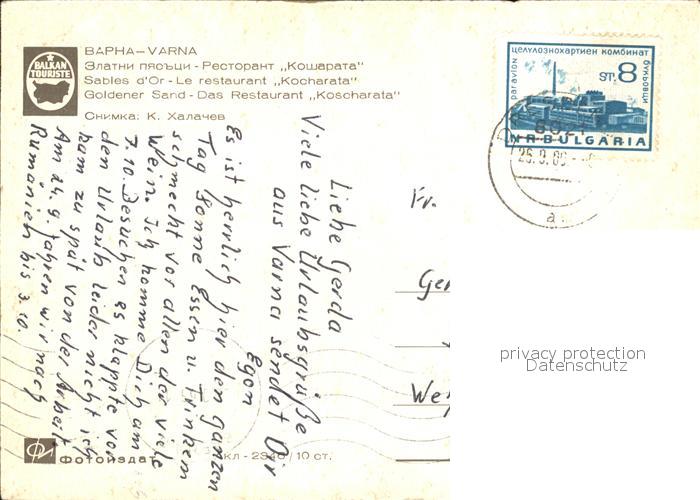 ВАРНА – VARNA
Златни пясъци - Ресторант „Кошарата"
Sables d'Or - Le restaurant „Kocharata"
Goldener Sand - Das Restaurant „Koscharata"
Снимка: К. Халачев
BALKAN
TOURISTE
целулознохартиен комбинат
букьовци
par avion
ST. 8
NR BULGARIA
Liebe Gerda
Viele liebe Urlaubsgrüße
aus Varna sendet Dir
Egon
Es ist herrlich hier den ganzen
Tag Sonne Essen u. Trinken
schmeckt vor allen der viele
Wein. Ich komme Dich am
7.10. Besuchen es klappte vor
den Urlaub leider nicht ich
kam zu spät von der Arbeit
Am 24.9. fahren wir nach
Rumänien bis 3.10.
Fr.
Ger
We
Фотоиздат
кл - 2346 / 10 ст.
privacy protection
Datenschutz